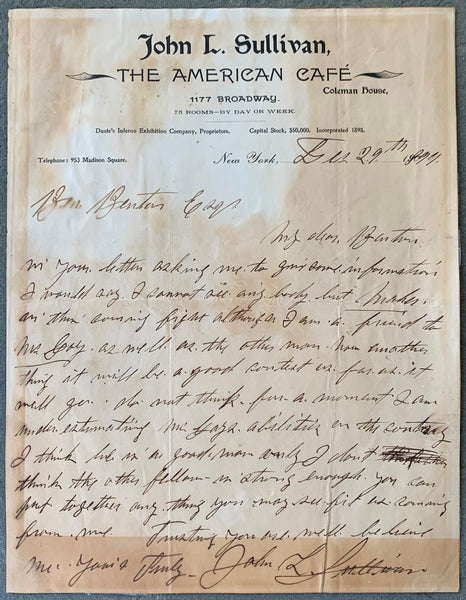 John L. Sullivan,
THE AMERICAN CAFÉ
Coleman House,
1177 BROADWAY.
75 ROOMS—BY DAY OR WEEK.
Dante's Inferno Exhibition Company, Proprietors. Capital Stock, $50,000. Incorporated 1898.
Telephone: 953 Madison Square. New York, Dec 29th 1899
Ben Benton Esq.
My dear Benton.
in your letter asking me to give some information
I would say I cannot see any body but Maher.
in this coming fight although I am a friend to
Mc Coy. as well as the other man. now another
thing it will be a good contest as far as it
will go. do not think for a moment I am
under estimating Mc Coys abilities on the contrary
I think he is a good man only I dont
think the other fellow is strong enough. you can
put together any thing you may see fit as coming
from me. Trusting you are well believe
me. Yours Truly - John L. Sullivan